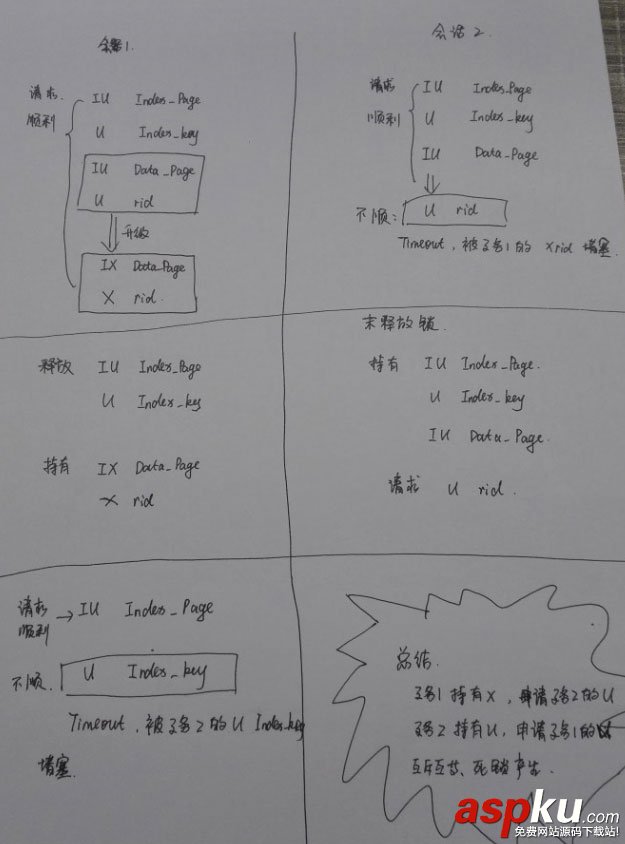 会话1.
请求
顺利
IU Index_Page
U Index_key
IU Data_Page
U rid
升级
IX Data_Page
X rid.
会话2
请求
顺利
IU Index_Page
U Index_key
IU Data_Page
不顺: U rid
Timeout, 被事务1的 X rid 堵塞
释放 IU Index_Page
U Index_key
持有 IX Data_Page
X rid
未释放锁.
持有 IU Index_Page.
U Index_key
IU Data_Page.
请求 U rid.
请求
顺利 → IU Index_Page
不顺. U Index_key
Timeout, 被事务2的 U Index_key
堵塞.
总结.
事务1持有X, 申请事务2的U
事务2持有U, 申请事务1的
死锁产生.
aspku.com
免费网站源码下载站!